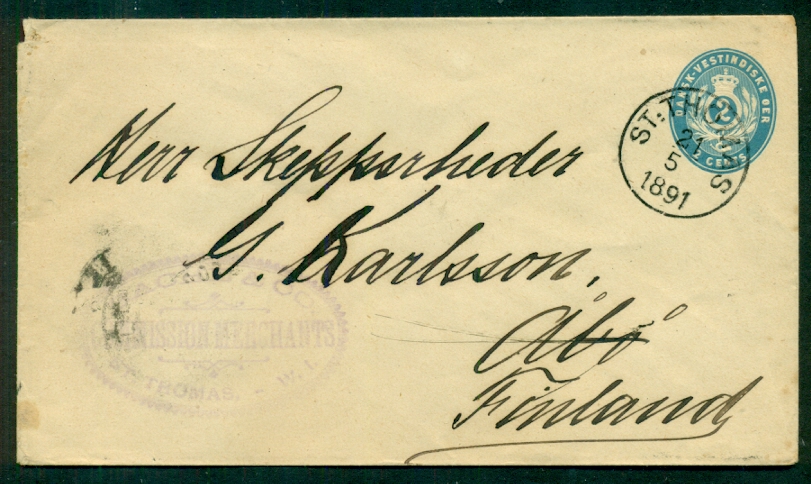 DANSK-VESTINDISKE ØER
CENTS
ST: THOMAS
21
5
1891
Herr Skeppsrheder
G. Karlsson,
Åbo
Finland
& CO
COMMISSION MERCHANTS
ST THOMAS. - W. I.